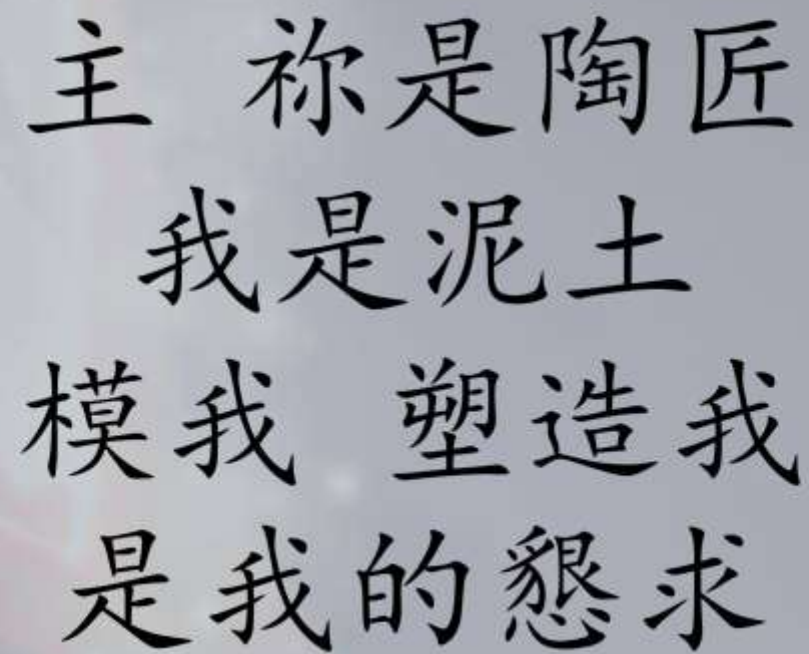 主 祢是陶匠
我是泥土
模我 塑造我
是我的懇求